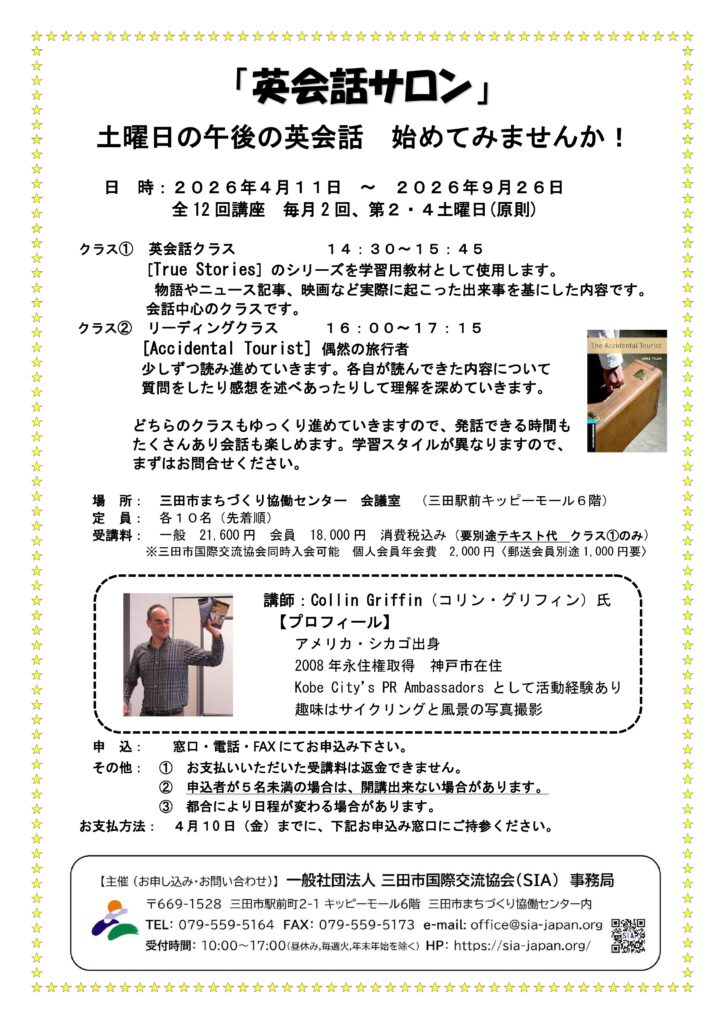 「英会話サロン」
土曜日の午後の英会話　始めてみませんか！
日　時：２０２６年４月１１日　～　２０２６年９月２６日
全12回講座　毎月2回、第２・４土曜日(原則)
クラス①　英会話クラス　１４：３０～１５：４５
[True Stories] のシリーズを学習用教材として使用します。
物語やニュース記事、映画など実際に起こった出来事を基にした内容です。
会話中心のクラスです。
クラス②　リーディングクラス　１６：００～１７：１５
[Accidental Tourist] 偶然の旅行者
少しずつ読み進めていきます。各自が読んできた内容について
質問をしたり感想を述べあったりして理解を深めていきます。
The Accidental Tourist
ANNE TYLER
どちらのクラスもゆっくり進めていきますので、発話できる時間も
たくさんあり会話も楽しめます。学習スタイルが異なりますので、
まずはお問合せください。
場　所：　三田市まちづくり協働センター　会議室　（三田駅前キッピーモール６階）
定　員：　各１０名（先着順）
受講料：　一般　21,600円　会員　18,000円　消費税込み（要別途テキスト代　クラス①のみ）
※三田市国際交流協会同時入会可能　個人会員年会費　2,000円〈郵送会員別途1,000円要〉
講師：Collin Griffin（コリン・グリフィン）氏
【プロフィール】
アメリカ・シカゴ出身
2008年永住権取得　神戸市在住
Kobe City's PR Ambassadors として活動経験あり
趣味はサイクリングと風景の写真撮影
申　込：　窓口・電話・FAXにてお申込み下さい。
その他：　①　お支払いいただいた受講料は返金できません。
②　申込者が５名未満の場合は、開講出来ない場合があります。
③　都合により日程が変わる場合があります。
お支払方法：　４月10日（金）までに、下記お申込み窓口にご持参ください。
【主催（お申し込み・お問い合わせ）】一般社団法人 三田市国際交流協会(SIA)　事務局
〒669-1528　三田市駅前町2-1 キッピーモール6階　三田市まちづくり協働センター内
TEL: 079-559-5164　FAX: 079-559-5173　e-mail: office@sia-japan.org
受付時間： 10:00～17:00（昼休み,毎週火,年末年始を除く）　HP: https://sia-japan.org/
SIA